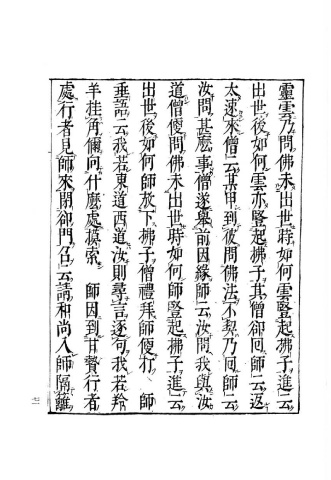 靈雲乃問佛未出世時如何雲豎起拂子進云
出世後如何雲亦豎起拂子其僧卻回師云返
太速來僧云某甲到彼問佛法不契乃回師云
汝問甚麼事僧遂舉前因緣師云汝問我與汝
道僧便問佛未出世時如何師豎起拂子進云
出世後如何師放下拂子僧禮拜師便打 師
垂語云我若東道西道汝則尋言逐句我若羚
羊挂角你向什麼處摸索 師因到甘贄行者
處行者見師來閉卻門召云請和尚入師隔籬